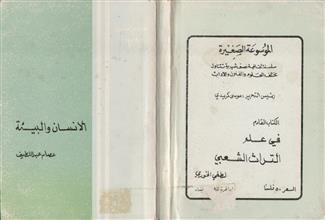 الموسوعة الصغيرة
سلسلة ثقافية نصف شهرية تتناول
مختلف العلوم والفنون والآداب
رئيس التحرير: موسى كريدي
الكتاب القادم
في علم
التراث الشعبي
لطفي الخوري
السعر ٥٠ فلسا
الانسان والبيئة
عصام عبداللطيف